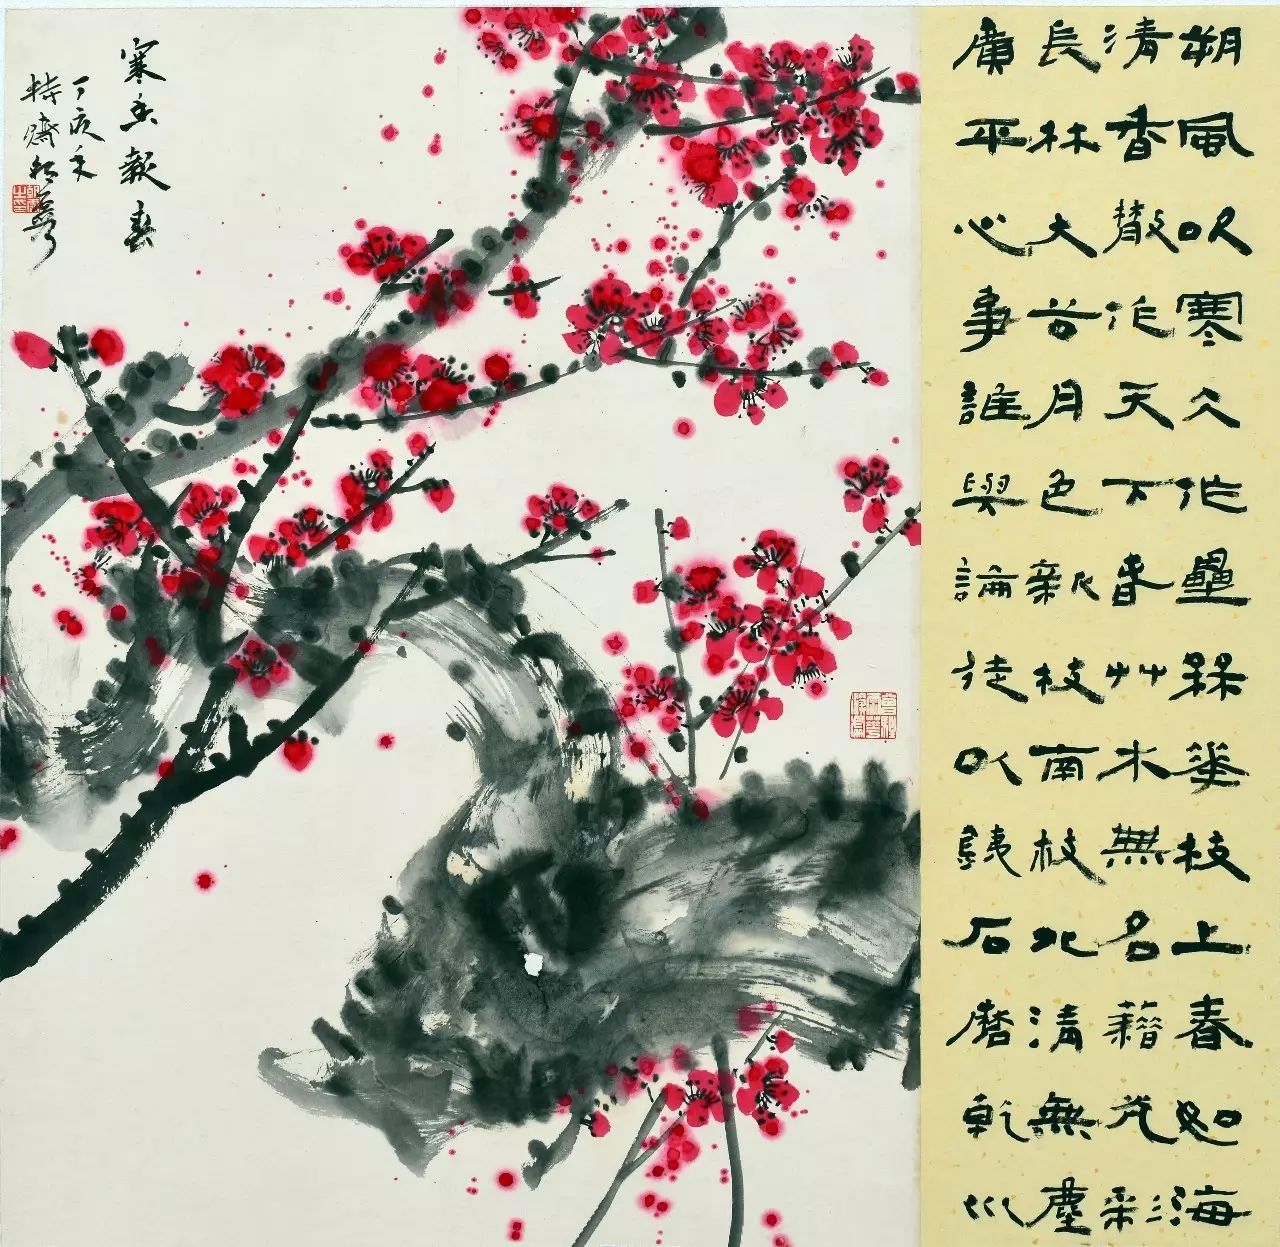 朔風吹寒仌作壘槑華枝上春如海
清香散作天下春艸木無名藉光彩
長林大谷月色新枝南枝北清無塵
廣平心事誰與論徒以銕石磨乾巛
寒香報春
丁亥冬